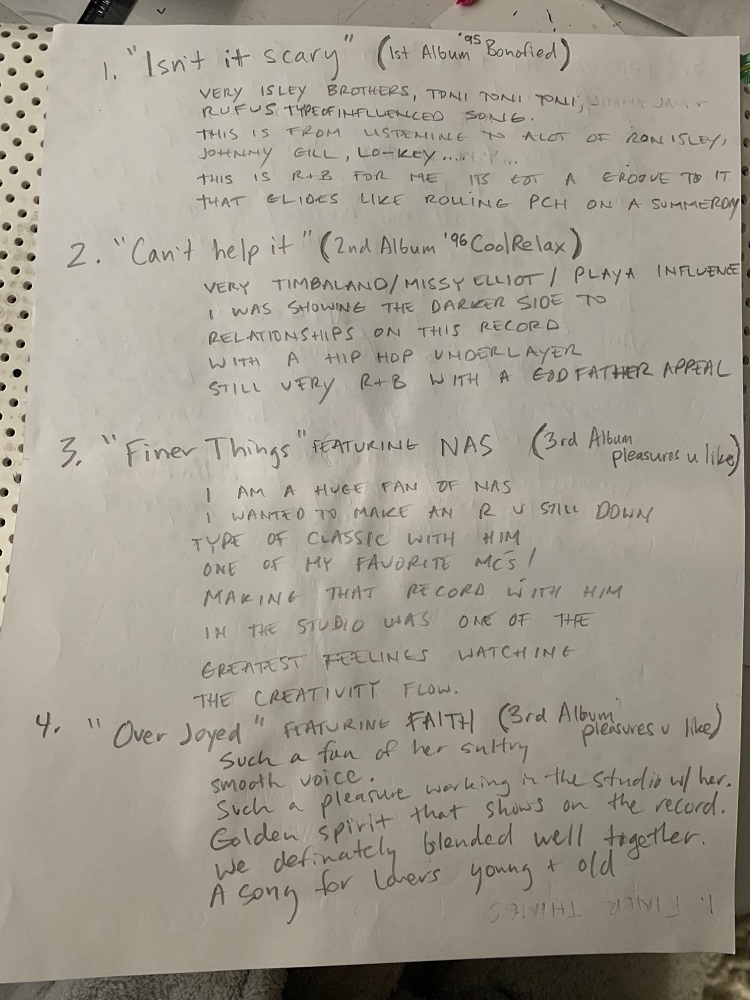 1. "Isn't it scary" (1st Album '95 Bonafied)
VERY ISLEY BROTHERS, TONI TONI TONI,
RUFUS TYPE OF INFLUENCED SONG.
THIS IS FROM LISTENING TO ALOT OF RON ISLEY,
JOHNNY GILL, LO-KEY.....
THIS IS R+B FOR ME ITS GOT A GROOVE TO IT
THAT GLIDES LIKE ROLLING PCH ON A SUMMERDAY
2. "Can't help it" (2nd Album '96 CoolRelax)
VERY TIMBALAND/MISSY ELLIOT/PLAYA INFLUENCE
I WAS SHOWING THE DARKER SIDE TO
RELATIONSHIPS ON THIS RECORD
WITH A HIP HOP UNDERLAYER
STILL VERY R+B WITH A GODFATHER APPEAL
3. "Finer Things" FEATURING NAS (3rd Album
pleasures u like)
I AM A HUGE FAN OF NAS
I WANTED TO MAKE AN R U STILL DOWN
TYPE OF CLASSIC WITH HIM
ONE OF MY FAVORITE MC'S!
MAKING THAT RECORD WITH HIM
IN THE STUDIO WAS ONE OF THE
GREATEST FEELINGS WATCHING
THE CREATIVITY FLOW.
4. "Over Joyed" FEATURING FAITH (3rd Album
pleasures u like)
Such a fan of her sultry
smooth voice.
Such a pleasure working in the studio w/ her.
Golden spirit that shows on the record.
We definately blended well together.
A song for lovers young + old
1. FINER THINGS